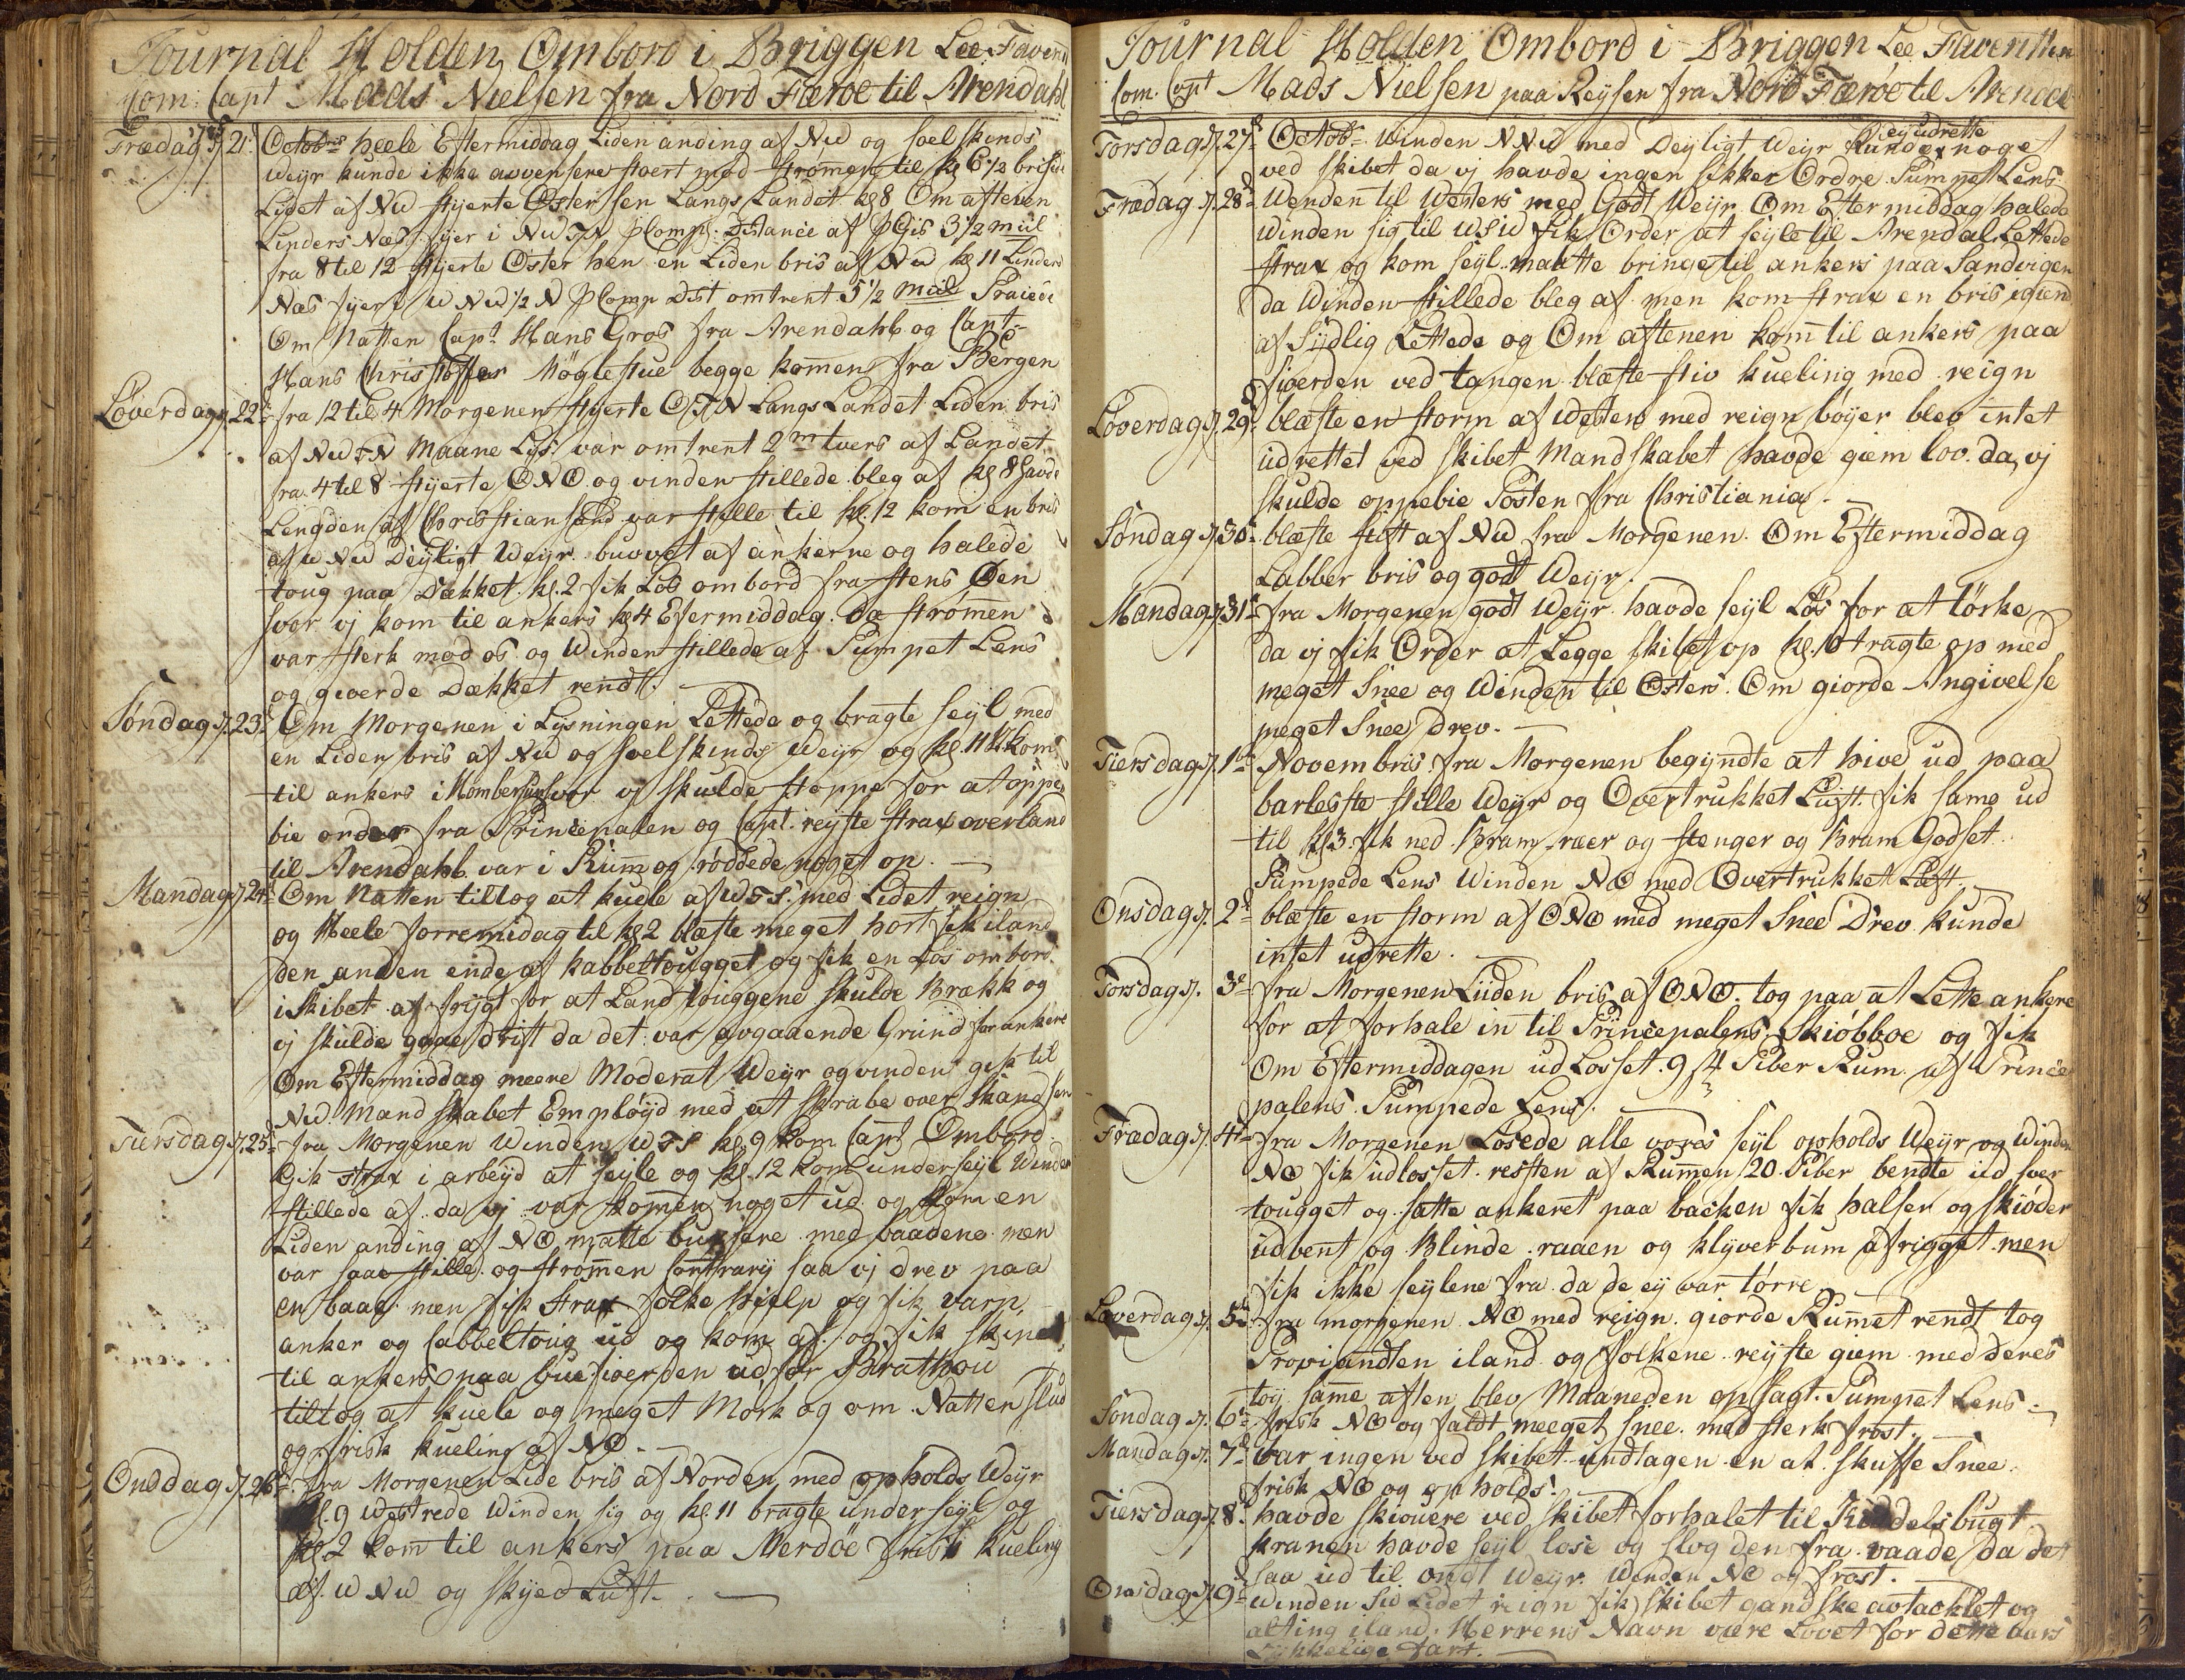 Journal Holden Ombord i Briggen Lee Faveri
Com: Capt Mads Nielsen fra Nord Færoe til Arendahl
Frædag d. 21. Octobris heele Eftermiddag Liden anding af NW og soelskinds
Weyr kunde ikke avensere stoert mod Strømmen til kl 6 1/2 brisen
Lidet af NW styerte Øster hen Langs Landet kl 8 Om aftenen
Linders Næs Pyer i NWTN pComp. Distance af pGis 3 1/2 miil
fra 8 til 12 styerte Øster hen en Liden bris af NW kl 11 Linders
Næs Pyert W NW 1/2 N pComp Dist omtrent 5 1/2 miil Praiede
Om Natten Capt Hans Gros fra Arendahl og Capt
Hans Christoffer Møglestue begge komen fra Bergen
Loverdag d. 22d fra 12 til 4 Morgenen styerte OTN Langs Landet Liden bris
af NWTN Maane Lys var omtrent 2 m tvers af Landet
fra 4 til 8 styerte ONO og vinden stillede bleg af kl 8 havde
Lengden af Christiansand var stille til kl. 12 kom en bris
af W NW Deyligt Weyr buvvet af ankerne og halede
toug paa Dækket. kl. 2 fik Los ombord fra stens Øen
hvor vj kom til ankers kl 4 Efermiddag. Da strømen
var sterk mod os og Winden stillede af Pumpet Lens
og gioerde Dækket rendt.
Søndag d. 23d Om Morgenen i Lysningen Lettede og bragte seyl med
en Liden bris af NW og soelskinds Weyr og kl. 11 kom
til ankers i Homborsun hvor vj skulde stoppe for at oppe
bie order fra Princepalen og Capt. reyste strax overland
til Arendahl var i Rum og røddede noget op.
Mandag d. 24d Om Natten tiltog at kuele af WTS. med Lidet reign
og Heele forremidag til kl 2 blæste meget hort fik iland
den anden ende af kabbeltougget og fik en Los ombord
i skibet af frygt for at Land touggene skulde Brække og
vj skulde gaae drift da det var avgaaende Grund for ankere
Om Eftermiddag meere Moderat Weyr og vinden gik til
NW. Mandskabet Employd med at skrabe over skandsen
Tiersdag d. 25d fra Morgenen Winden WTS kl. 9 kom Capt Ombord
Gik strax i arbeyd at seyle og kl. 12 kom underseyl Winden
stillede af da vj var komen noget ud og kom en
Liden anding af NO matte buxsere med baadene men
var saae stille og strømen Contrary saa vj drev paa
en baae men fik strax folke hielp og fik varp
anker og Cabbeltoug ud og kom af og fik skipet
til ankers paa buefioerden ud for Brathou
tiltog at kuele og meget Mørk og om Natten slud
og frisk kueling af NO.
Onsdag d. 26d fra Morgenen Lide bris af Norden med opholds Weyr
kl. 9 Westrede Winden sig og kl. 11 bragte underseyl og
kl 2 kom til ankers paa Merdöe frisk kueling
af W NW og skyed Luft.
Journal Holden Ombord i Briggen Lee Faverithen
Com. Capt Mads Nielsen paa Reysen fra Nord Færoe til Arendal
ey udrette
Torsdag d. 27d Octob= Winden NNW med Deyligt Weyr kunde noget
ved skibet da vj havde ingen sikker Ordre Pumpet Lens
Frædag d. 28d Wenden til Westers med Godt Weyr Om Eftermiddag halede
Winden sig til WSW fik Order at seyle til Arendal Lettede
strax og kom seyl maatte bringe til ankers paa Sandvigen
da Winden stillede bleg af men kom strax en bris igien
af Sydlig Lettede og Om aftenen kom til ankers paa
fioerden ved tangen blæste stiv kueling med reign
Loverdag d. 29d blæste en storm af Westen med reign bøyer blev intet
udrettet ved skibet Mandskabet havde giem lov. da vj
skulde oppebie Posten fra Christiania.
Søndag d. 30d blæste stift af NW fra Morgenen. Om Eftermiddag
Labber bris og godt Weyr.
Mandag d. 31d fra Morgenen godt Weyr havde seyl Løs for at tørke
da vj fik Order at Legge skibet op kl. 10 tragte op med
meget Snee og Winden til Østers. Om giorde Angivelse
meget Snee drev.
Tiersdag d. 1de Novembris fra Morgenen begyndte at hive ud paa
barleste stille Weyr og Overtrukket Luft. fik same ud
til kl 3 fik ned Bram ræer og stenger og Bram Godset
Pumpede Lens Winden NO med Overtrukket Luft.
Onsdag d. 2d blæste en storm af ONO med meget Snee Drev kunde
intet udrette.
Torsdag d. 3d fra Morgenen Liden bris af ONO. tog paa at Lette ankere
for at forhale in til Princepalens Skiøbboe og fik
Om Eftermiddagen ud Losset 94 Piber Rum af Prince
palens. Pumpede Lens.
Frædag d. 4d fra Morgenen Losede alle vores seyl opholds Weyr og Winden
NO fik udlosset resten af Rummen 20 Piber bendte ud sver
tougget og satte ankeret paa backen fik halser og skiøder
udbent og Blinde raaen og klyverbum afrigget men
fik ikke seylene fra da de ey var tørre
Loverdag d. 5d fra morgenen NO med reign. giorde Rummet rendt tog
Proviandten iland og folkene reyste giem med deres
tøy same aften blev Maaneden opsagt. Pumpet Lens.
Søndag d. 6d frisk NO og faldt meeget snee med sterk frost.
Mandag d. 7d var ingen ved skibet undtagen en at skuffe Snee
frisk NO og opholds.
Tiersdag d. 8d havde skiouere ved skibet forhalet til delsbugt
kranen havde seyl lose og slog den fra raade da det
saa ud til ondt Weyr Winden NO og frost.
Onsdag d. 9d Winden SW Lidet reign fik skibet gandske avtacklet og
alting iland. Herrens Navn være Lovet for dette aars
Lykkelige fart.